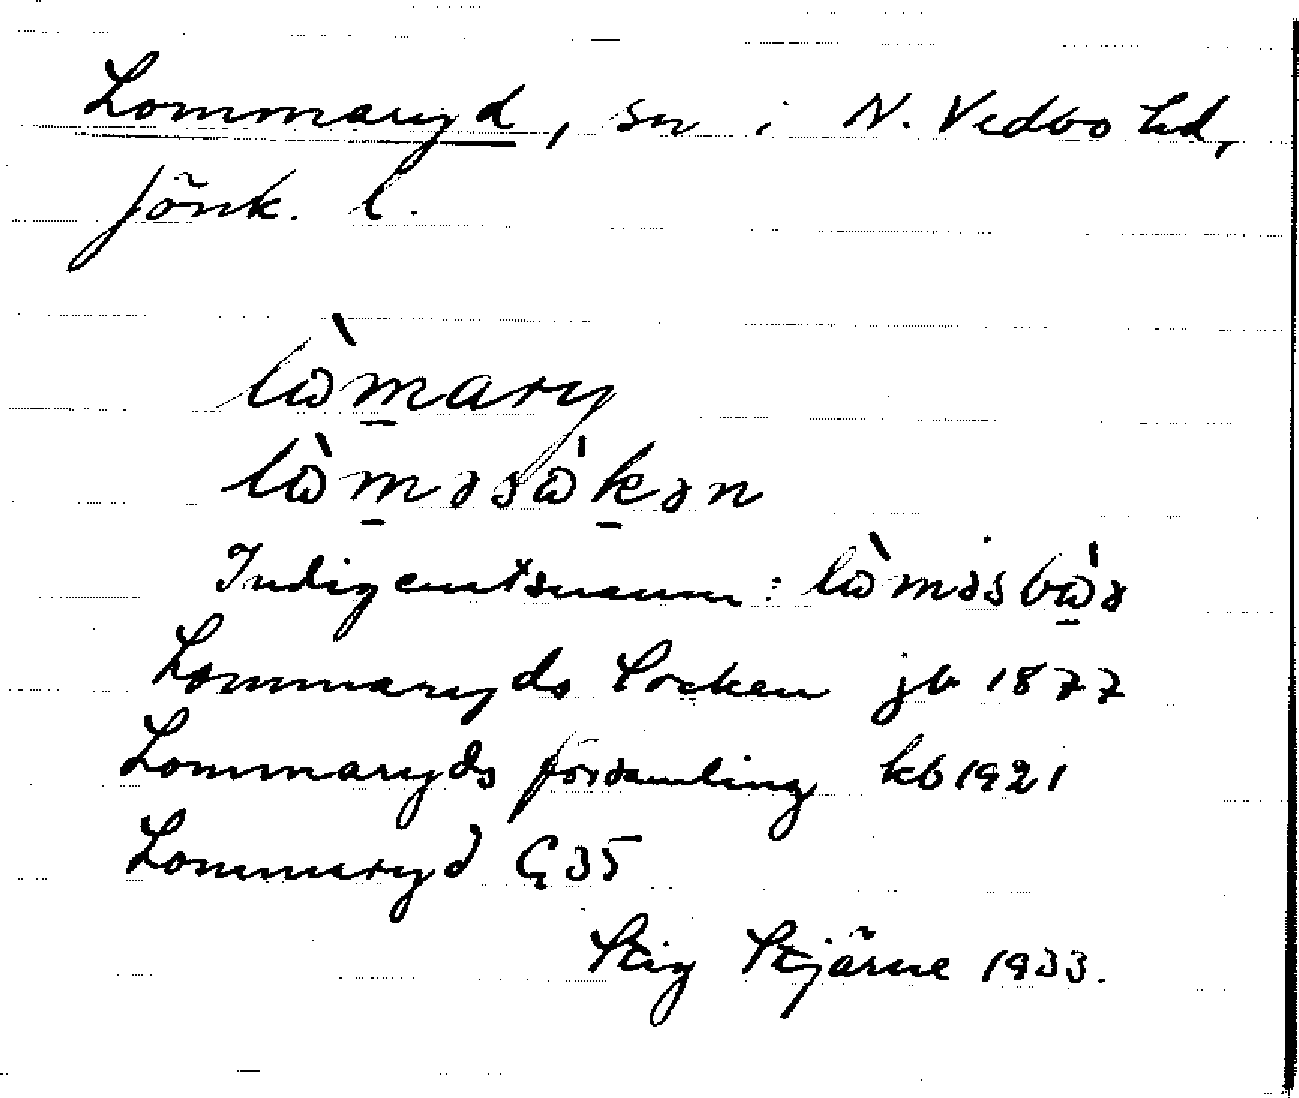 Lommaryd, sn i N. Vedbo hd,
Jönk. l.
lɷ̀mary
lɷ̀məsɷ̀kən
Indigenatsnamn: lɷ̀məsbɷ̀ə
Lommaryds Socken jb 1877
Lommaryds församling kb 1921
Lommaryd G 35
Stig Stjärne 1933.